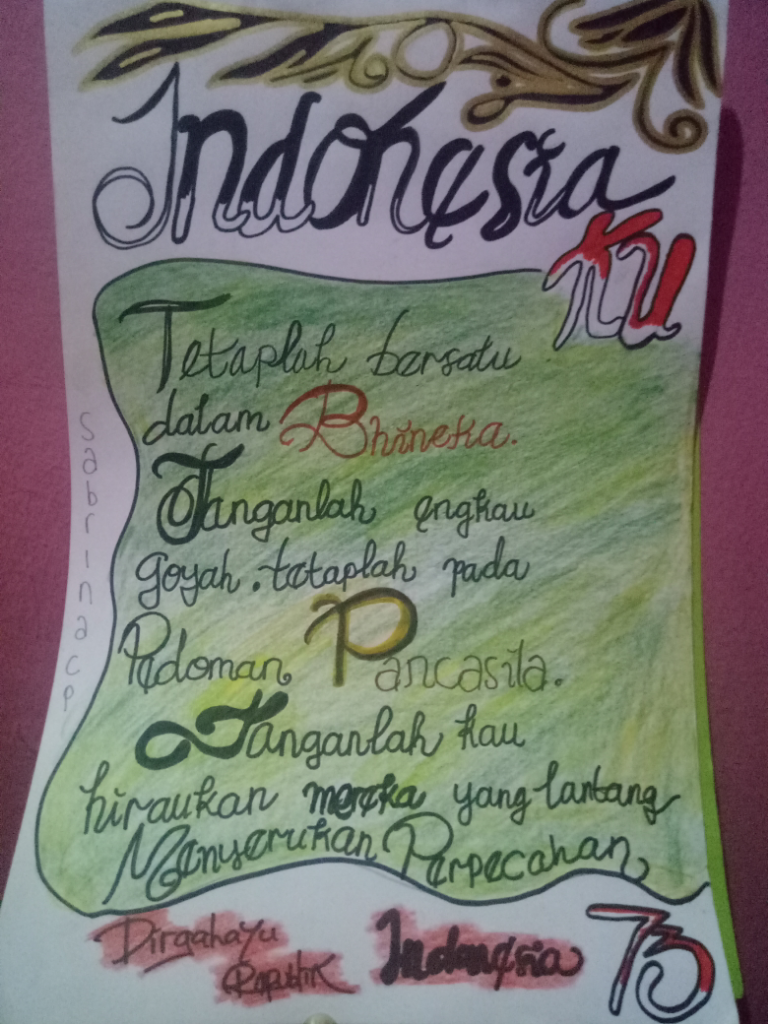 Indonesia
KU
Tetaplah bersatu
dalam Bhineka.
Janganlah engkau
goyah. tetaplah pada
Pedoman Pancasila.
Janganlah kau
hiraukan mereka yang lantang
Menyerukan Perpecahan
Dirgahayu
Republik Indonesia 73
sabrinacp